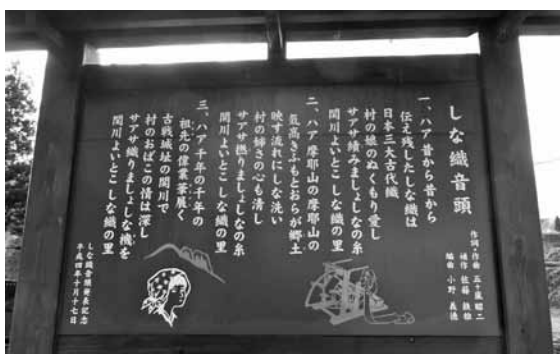 しな織音頭
作詞・作曲 五十嵐昭二
補作 佐藤 敏雄
編曲 小野 義徳
一、ハア 昔から昔から
伝え残したしな織は
日本三大古代織
村の娘のぬくもり愛し
サアサ績みましょしなの糸
関川よいとこ しな織の里
二、ハア 摩耶山の摩耶山の
気高きふもとおらが郷土
映す流れにしな洗い
村の姉さの心も清し
サアサ撚りましょしなの糸
関川よいとこ しな織の里
三、ハア 千年の千年の
祖先の偉業華展く
古戦城址の関川で
村のおばこの情は深し
サアサ織りましょしな織を
関川よいとこ しな織の里
しな織音頭発表記念
平成四年十月十七日